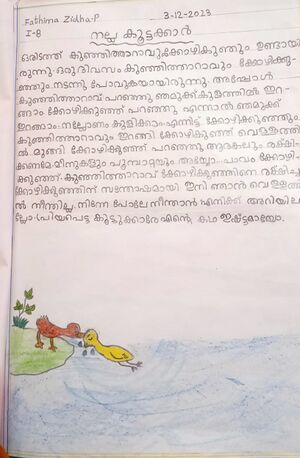 Fathima Zidha-P
3-12-2023
I-8
നല്ല കൂട്ടുക്കാർ
ഒരിടത്ത് കുഞ്ഞിത്താറാവും ക്കോഴികുഞ്ഞും ഉണ്ടായി
രുന്നു. ഒരു ദിവസം കുഞ്ഞിത്താറാവും ക്കോഴിക്കു
ഞ്ഞും നടന്നു പോവുകയായിരുന്നു. അപ്പോൾ
കുഞ്ഞിത്താറാവ് പറഞ്ഞു ഞമുക്ക് കുളത്തിൽ ഇറ
ങ്ങാം ക്കോഴിക്കുഞ്ഞ് പറഞ്ഞു എന്നാൽ ഞമുക്ക്
ഇറങ്ങാം നല്ലോണം കുളിക്കാം എന്നിട്ട് ക്കോഴിക്കുഞ്ഞും
കുഞ്ഞിത്താറാവും ഇറങ്ങി ക്കോഴിക്കുഞ്ഞ് വെള്ളത്തി
ൽ മുങ്ങി ക്കോഴിക്കുഞ്ഞ് പറഞ്ഞു ആരെങ്കിലും രക്ഷി
ക്കണമേ മീനുകളും പൂമ്പാറ്റയും അയ്യോ... പാവം ക്കോഴി
കുഞ്ഞ്. കുഞ്ഞിത്താറാവ് ക്കോഴിക്കുഞ്ഞിനെ രക്ഷിച്ചു
ക്കോഴിക്കുഞ്ഞിന് സന്തോഷമായി ഇനി ഞാൻ വെള്ളത്തി
ൽ നീന്തില്ല. നിന്നേ പോലേ നീന്താൻ എനിക്ക് അറിയില
ല്ലോ. പ്രിയപെട്ട കൂട്ടുക്കാരേ എന്റെ കഥ ഇഷ്ടമായോ.